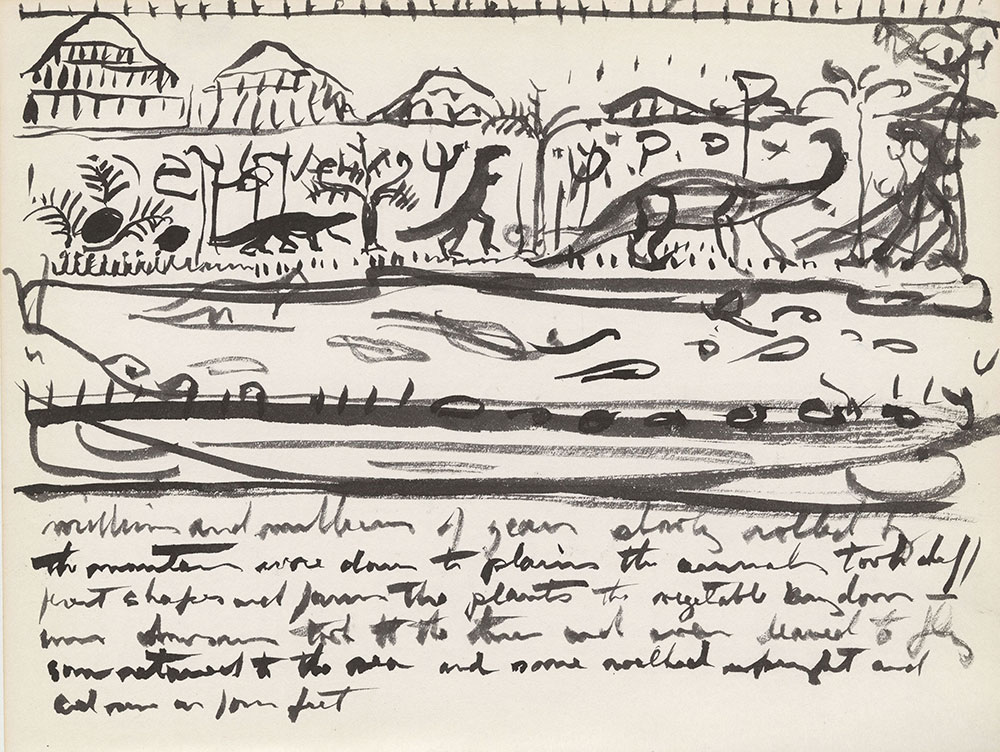 millions and millions of years slowly rolled by
the mountains wore down to plains the animals took diff
erent shapes and forms the plants the vegetable kingdom —
took to the trees and even learned to fly
some returned to the sea and some walked upright and
on four feet